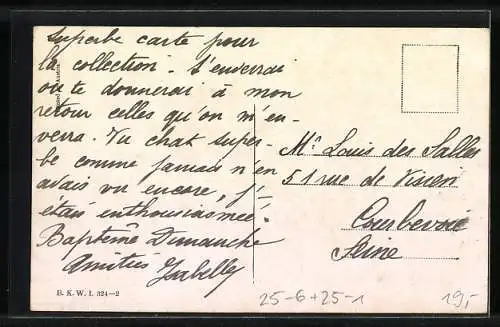 Superbe carte pour
la collection. T'enverrai
ou te donnerai à mon
retour celles qu'on m'en-
verra. Vu chat super-
be comme jamais n'en
avais vu encore, j'é-
tais enthousiasmée.
Baptême Dimanche
Amitiés Isabelle
Mr Louis des Salles
51 rue de
Courbevoie
Seine
B. K. W. I. 324-2
25-6+25-1
19,-